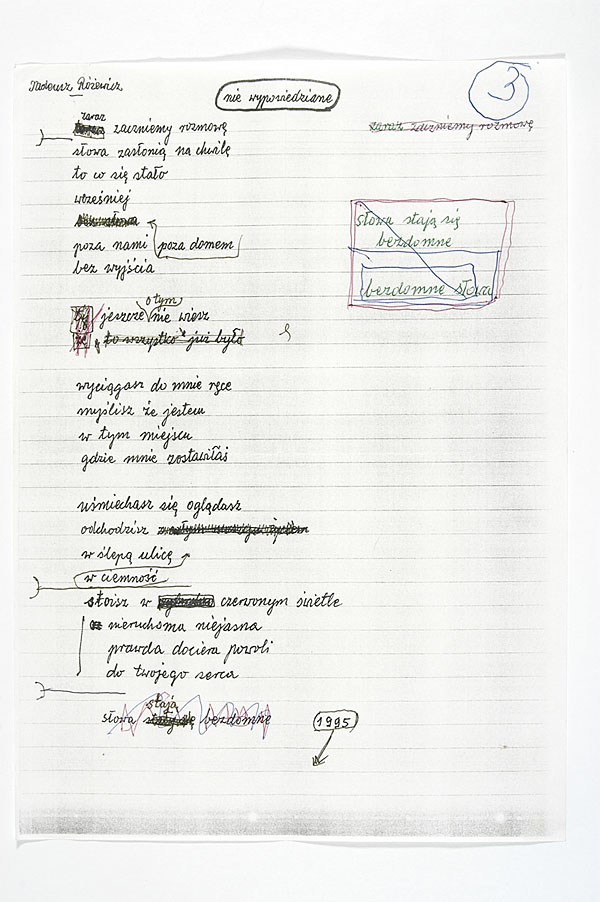 Tadeusz Różewicz
3
nie wypowiedziane
zaraz
zaczniemy rozmowę
zaraz zaczniemy rozmowę
słowa zasłonią na chwilę
to co się stało
wcześniej
poza nami poza domem
bez wyjścia
słowa stają się
bezdomne
bezdomne słowa
o tym
jeszcze nie wiesz
że to wszystko już było
wyciągasz do mnie ręce
myślisz że jestem
w tym miejscu
gdzie mnie zostawiłaś
uśmiechasz się oglądasz
odchodzisz
w ślepą ulicę
w ciemność
stoisz w czerwonym świetle
nieruchoma niejasna
prawda dociera powoli
do twojego serca
stają
słowa się bezdomne
1995